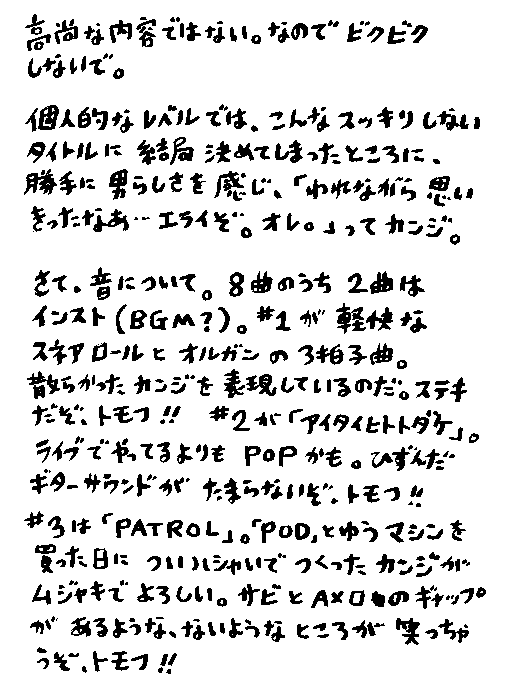 高尚な内容ではない。なので ビクビク
しないで。
個人的なレベルでは、こんな スッキリ しない
タイトルに 結局 決めてしまったところに、
勝手に 男らしさを 感じ、「われながら 思い
きったなあ… エライぞ。オレ。」って カンジ。
さて、音について。8曲のうち 2曲は
インスト(BGM?)。#1が 軽快な
スネアロールと オルガンの 3拍子曲。
散らかった カンジを 表現しているのだ。ステキ
だぞ、トモフ!! #2が「アイタイヒトトダケ」。
ライブでやってるよりも POPかも。ひずんだ
ギターサウンドが たまらないぞ、トモフ!!
#3は「PATROL」。「POD」とゆう マシンを
買った日に ついいしゃいで つくった カンジが
ムジャキで よろしい。サビと Aメロのギャップ
が あるような、ないような ところが 笑っちゃ
うぞ、トモフ!!